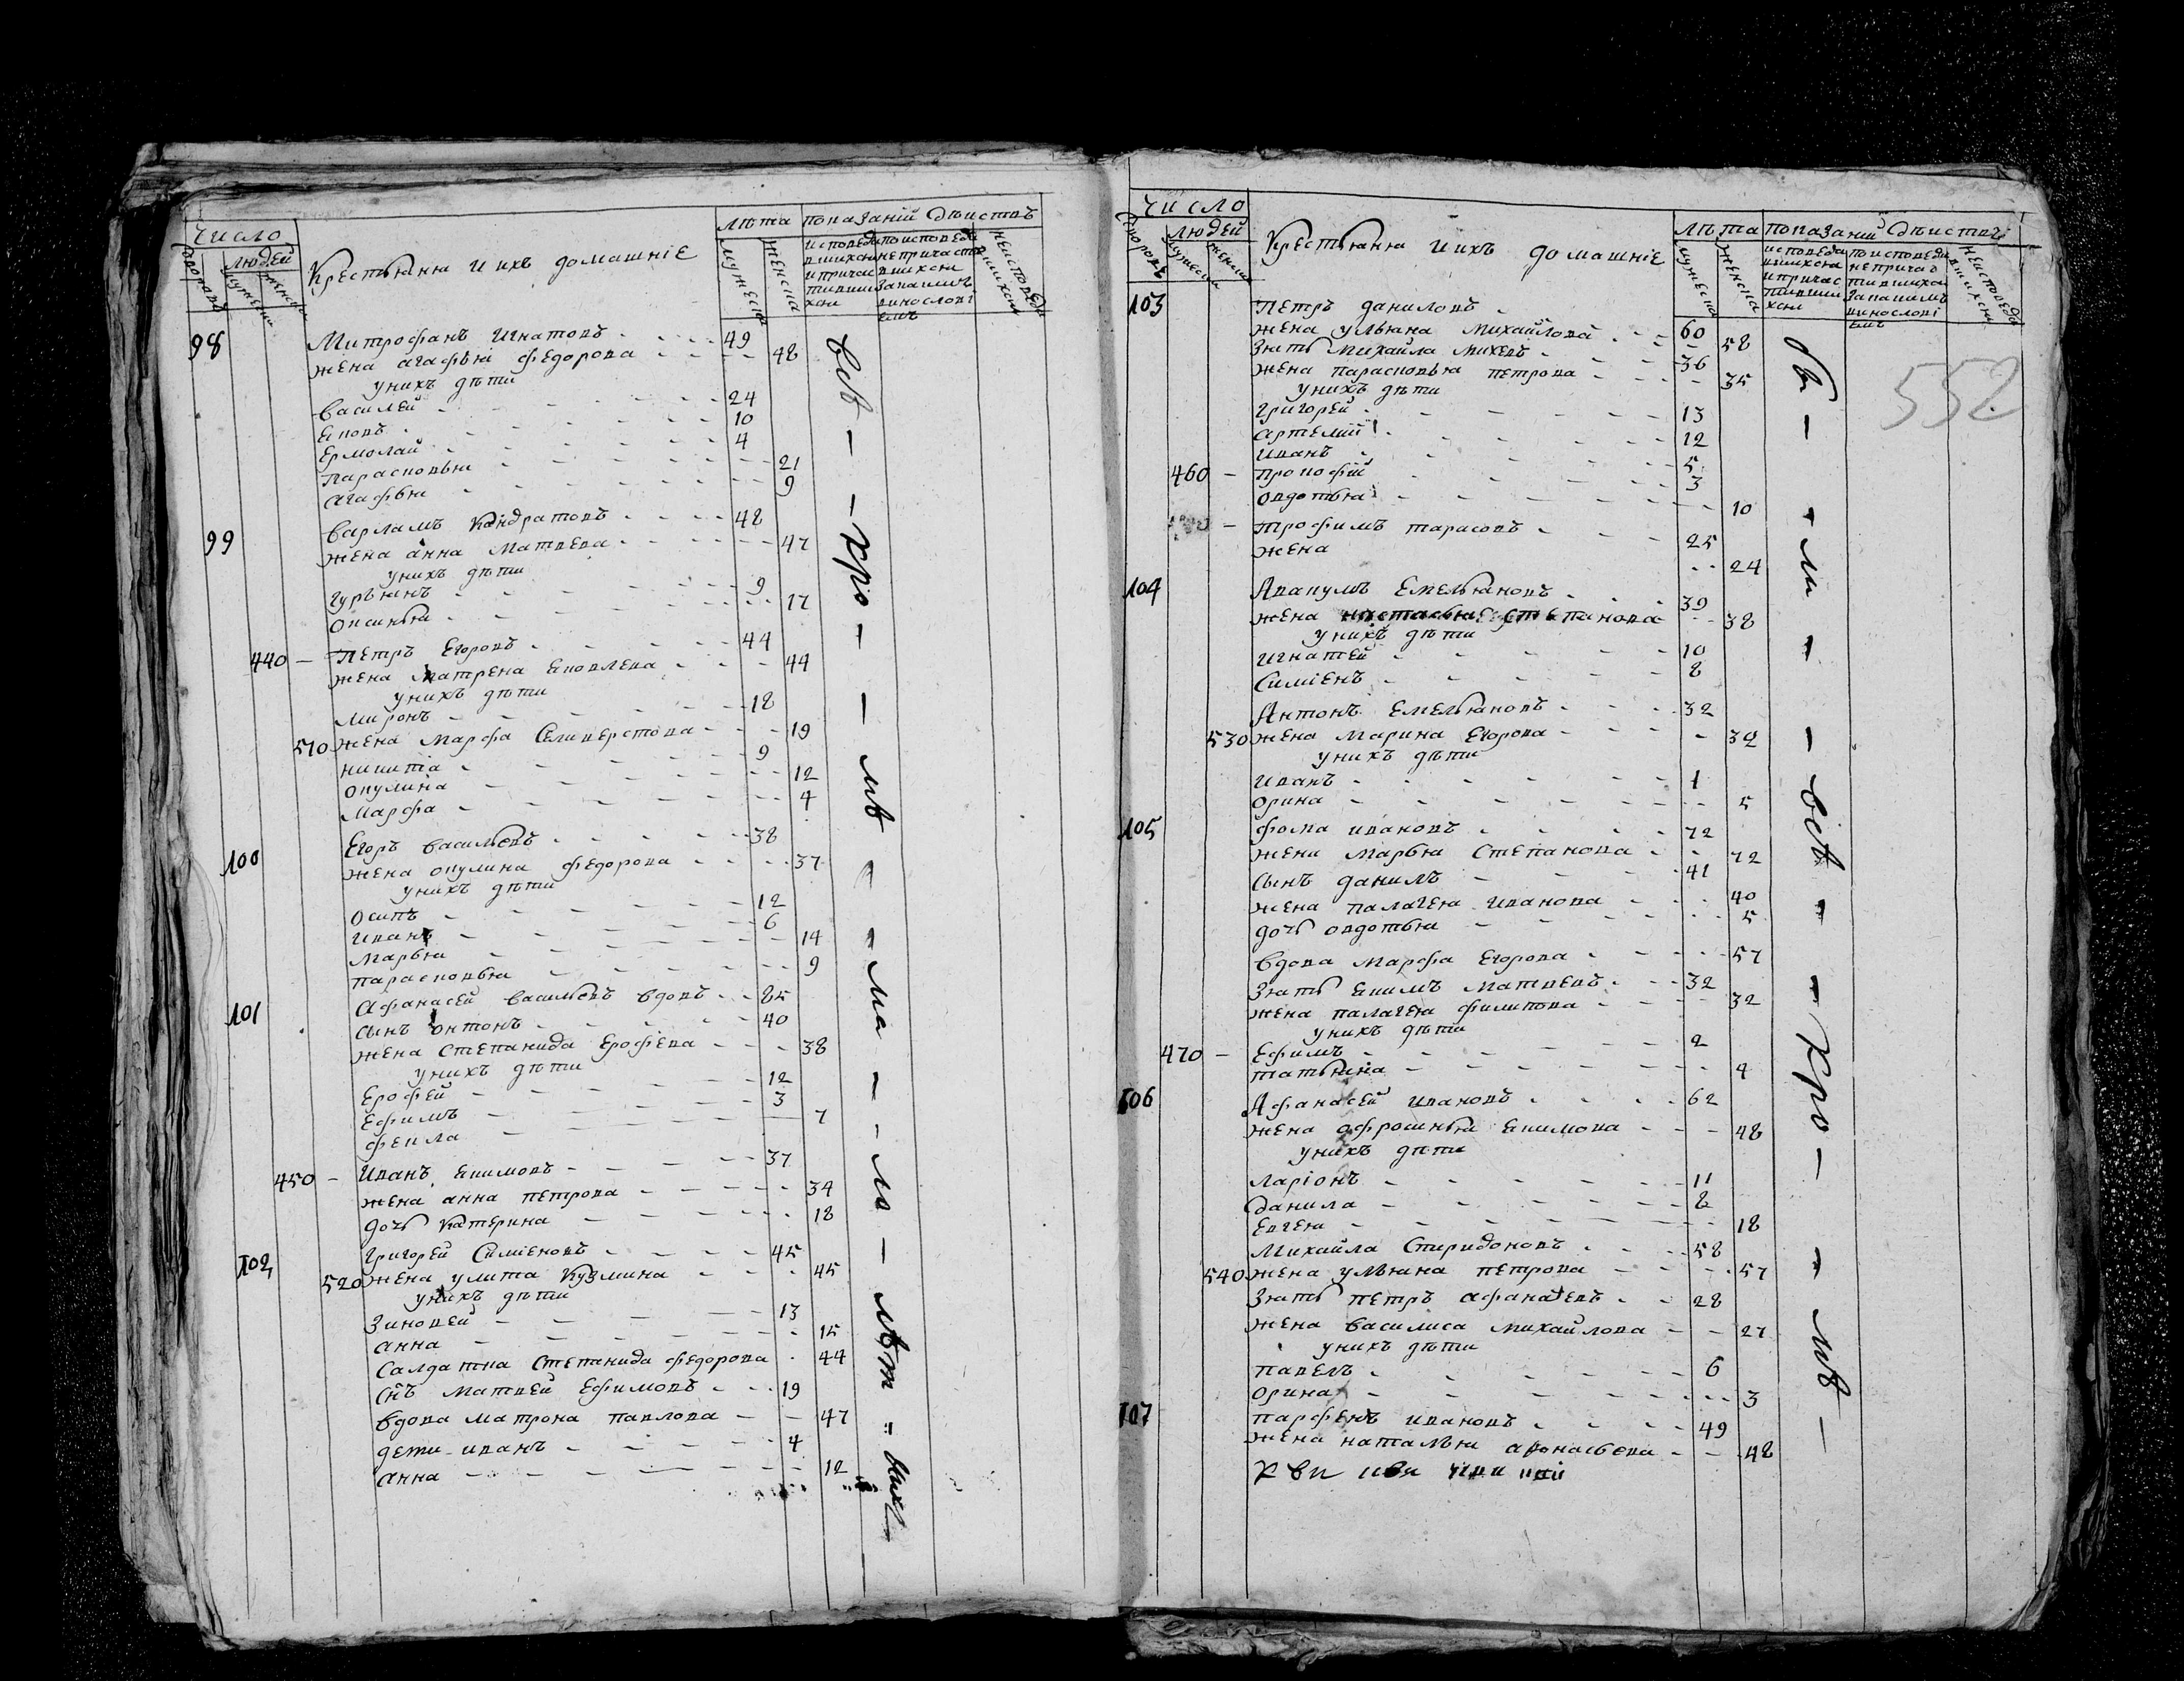 число
людей
дворовъ
мужеска
женска
Крестьяня и ихъ домашніе
лѣта
показаній дѣиствъ
мужеска
женска
98 Митрофанъ Игнатовъ 49
жена агафья федорова 48
у нихъ дѣти
василей 24
яковъ 10
Ермолай 4
парасковья 21
агафья 9
99 варламъ кондратовъ 48
жена анна матвеева 47
у нихъ дѣти
гурьянъ 9
оксинья 17
440 Петръ Егоровъ 44
жена матрена яковлева 44
у нихъ дѣти
миронъ 18
510 жена марфа Селиверстова 19
никита 9
окулина 12
марфа 4
100 Егоръ васильевъ 38
жена окулина федорова 37
у нихъ дѣти
осипъ 12
иванъ 6
марья 14
парасковья 9
101 Афанасей васильевъ вдовъ 85
сынъ онтонъ 40
жена степанида Ерофѣева 38
у нихъ дѣти
Ерофей 12
Ефимъ 3
фекла 7
450 Иванъ якимовъ 37
жена анна петрова 34
дочь катерина 18
102 Григорей Симіеновъ 45
520 жена улита кузмина 45
у нихъ дѣти
Зиновей 13
анна 15
Салдатка степанида федорова 44
Снъ матвей Ефимовъ 19
вдова матрона павлова 47
дети иванъ 4
анна 12
число
людей
дворовъ
мужеска
женска
Крестьяня и ихъ домашніе
лѣта
показаній дѣиствъ
мужеска
женска
552
103 Петръ даниловъ 60
жена ульяна михайлова 58
Зять михайла михевъ 36
жена парасковья петрова 35
у нихъ дѣти
Григорей 13
артемій 12
иванъ 5
460 прокофій 3
овдотья 10
трофимъ тарасовъ 25
жена 24
104 Авакумъ Емельяновъ 39
жена настасья степанова 38
у нихъ дѣти
игнатей 10
Симіенъ 8
Антонъ Емельяновъ 32
530 жена марина Егорова 32
у нихъ дѣти
иванъ 1
орина 5
105 фома ивановъ 72
жена марья Степанова 72
сынъ данилъ 41
жена палагея иванова 40
дочь овдотья 5
вдова марфа Егорова 57
Зять якимъ матвеевъ 32
жена палагея филипова 32
у нихъ дѣти
470 Ефимъ 2
татьяна 4
106 Афанасей ивановъ 62
жена офросинья якимова 48
у нихъ дѣти
ларіонъ 11
данила 8
Евгея 18
михайла Спиридоновъ 58
540 жена ульяна петрова 57
Зять петръ афанасевъ 28
жена василиса михайлова 27
у нихъ дѣти
павелъ 6
орина 3
107 парфенъ ивановъ 49
жена наталья афонасьева 48